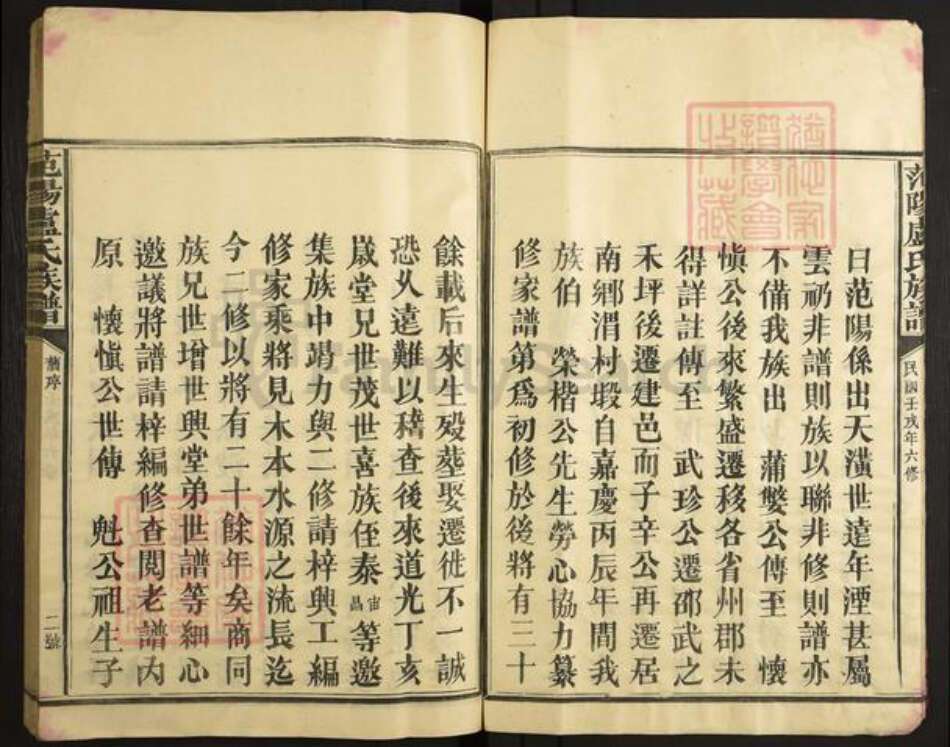 范陽盧氏族譜
民國壬戌年六修
曰范陽係出天潢世遠年湮甚屬
雲礽非譜則族以聯非修則譜亦
不備我族出 蒲嫳公傳至 懷
慎公後來繁盛遷移各省州郡未
得詳註傳至 武珍公遷邵武之
禾坪後遷建邑而子辛公再遷居
南鄉渭村塅自嘉慶丙辰年間我
族伯 榮楷公先生勞心協力纂
修家譜第爲初修於後將有三十
餘載后來生殁塟娶遷徙不一誠
恐久遠難以稽查後來道光丁亥
歲堂兄世茂世喜族侄泰宙昌等邀
集族中竭力與二修請梓興工編
修家乘將見木本水源之流長迄
今二修以將有二十餘年矣商同
族兄世增世興堂弟世譜等細心
邀議將譜請梓編修查閱老譜內
原 懷慎公世傳 兝公祖生子
范陽盧氏族譜
舊序
二號